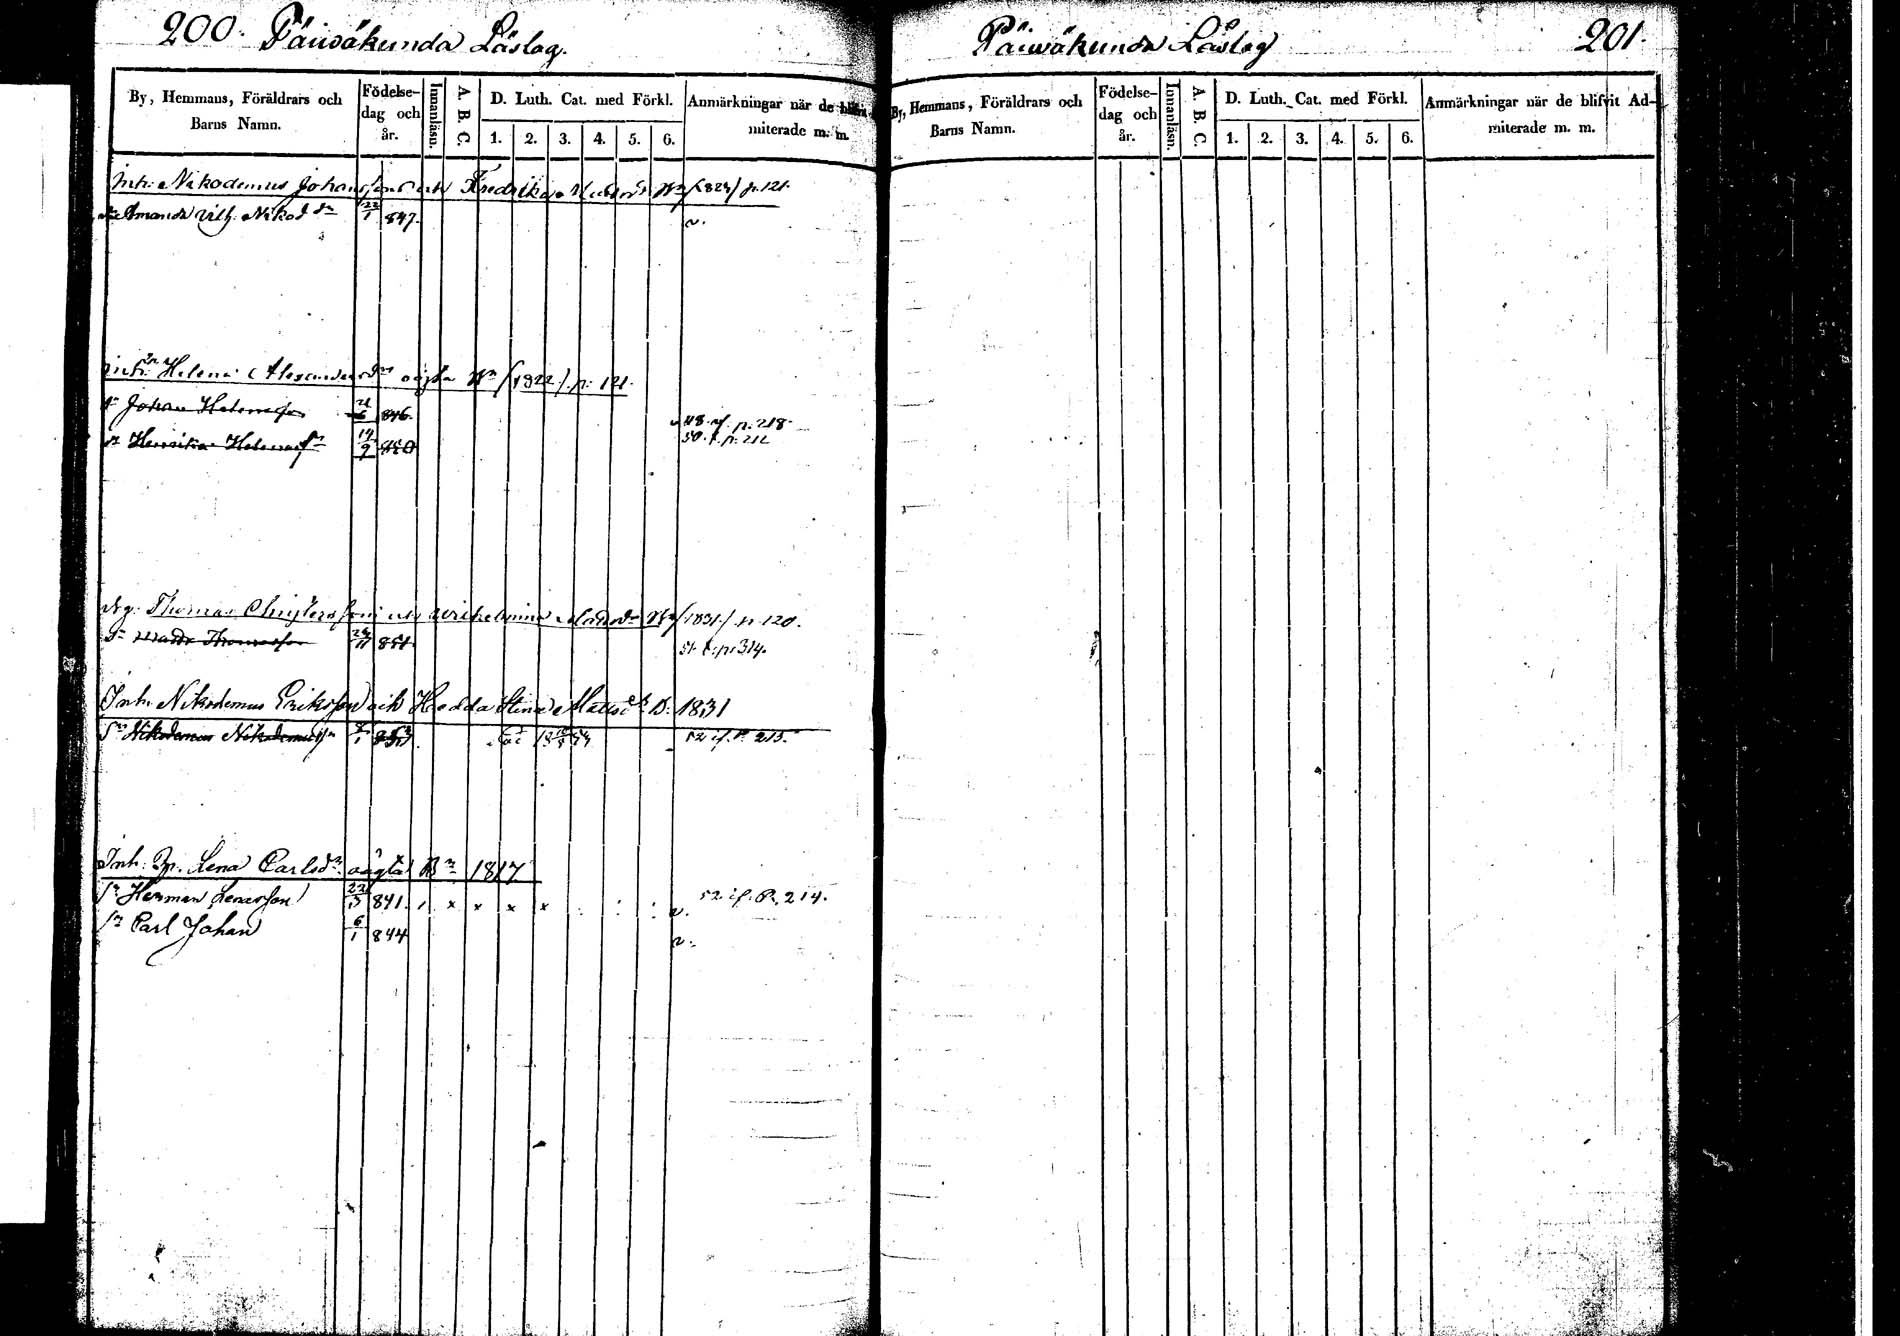 200. Päiwäkunda Läslag.
By, Hemmans, Föräldrars och Barns Namn.
Födelse-dag och år.
Innanläsn.
A. B. C.
D. Luth. Cat. med Förkl.
1. 2. 3. 4. 5. 6.
Anmärkningar när de blifvit miterade m. m.
Inh. Nikodemus Johansson och Fredrika p. 121.
Amanda Vilh. Nikod dr 22/1 847.
Inh. Helena Alexandersdr oägta (1822) p. 121.
Johan Helenasson 846. 48 if. p. 218.
Henrika Helenasdr 14/9 850 50. f. p. 212
Thomas och Wilhelmina (1831) p. 120.
Sn Thomasson 851 51. f. p. 314.
Inh. Nikodemus Eriksson och Hedda Stina Mattsdr D. 1831
Sn Nikodemus Nikodemusson 853 52 if. P. 213.
Inh. Lena Carlsdr oägta Bn 1817
Sn Herman Lenasson 22/3 841. x x x x v. 52 if. P. 214.
Sn Carl Johan 6/1 844 v.
Päiwäkunda Läslag 201.
By, Hemmans, Föräldrars och Barns Namn.
Födelse-dag och år.
Innanläsn.
A. B. C.
D. Luth. Cat. med Förkl.
1. 2. 3. 4. 5. 6.
Anmärkningar när de blifvit Ad-miterade m. m.